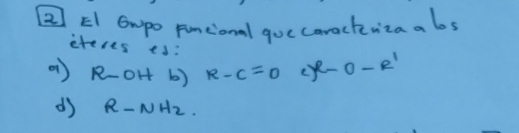 2 El Grupo Funcional que caracteriza a los
éteres es:
a) R-OH b) R-C=O c) R-O-R'
d) R-NH2.